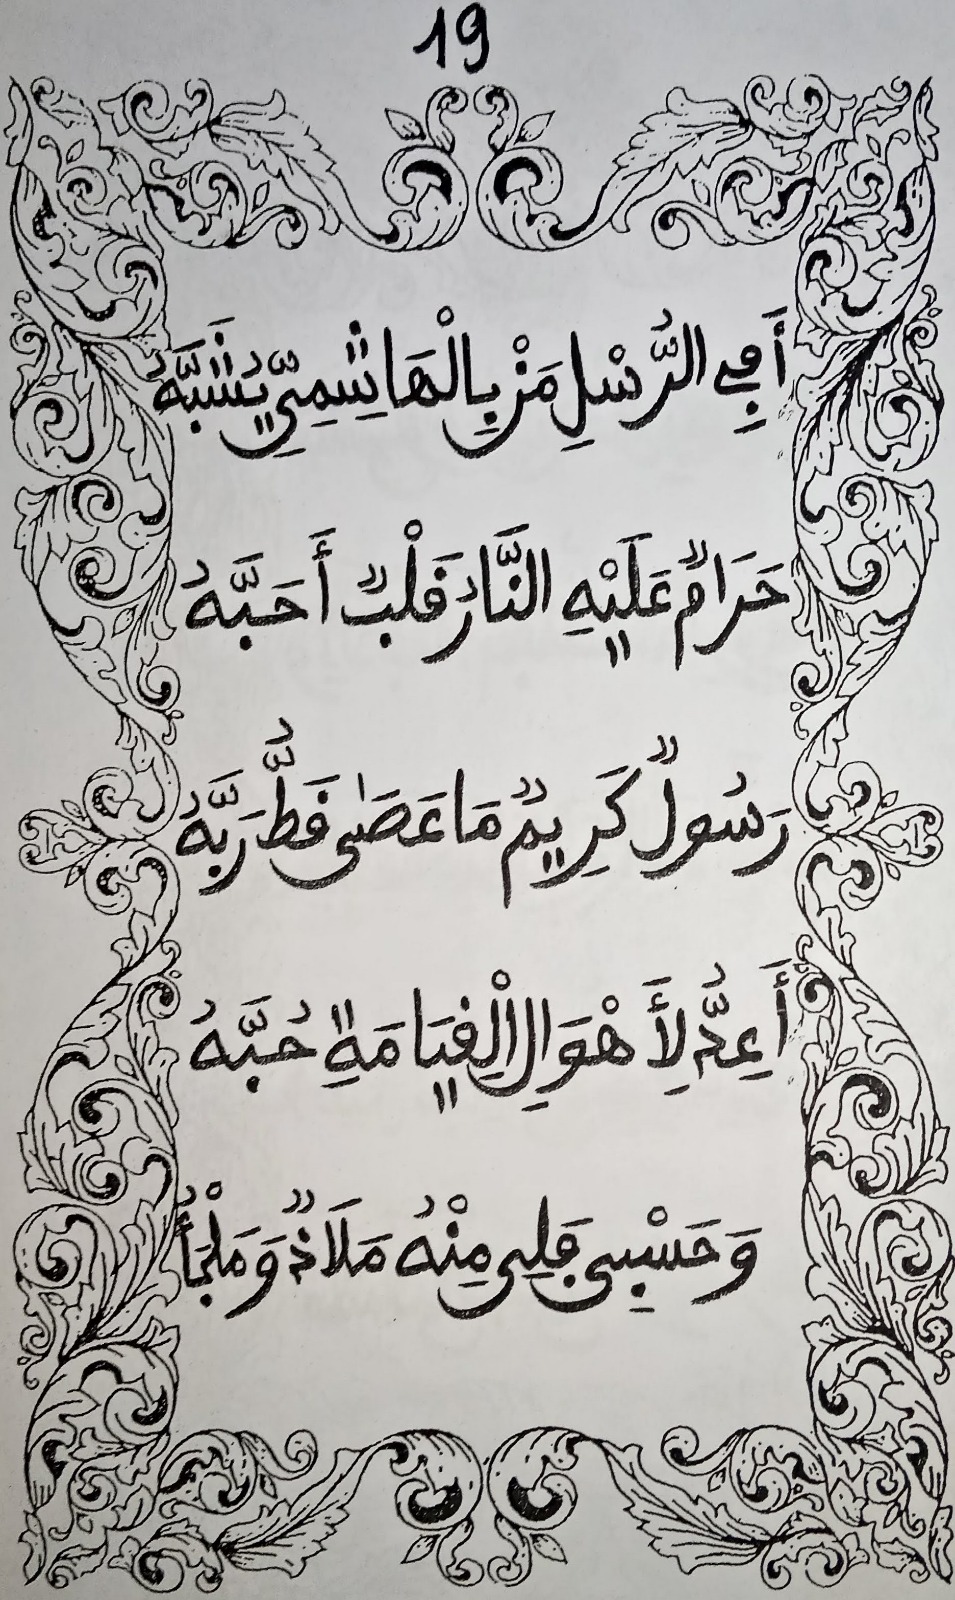 19
أَفِي الرُّسْلِ مَنْ بِالْهَاشِمِيِّ يُشَبَّهُ
حَرَامٌ عَلَيْهِ النَّارُ قَلْبٌ أَحَبَّهُ
رَسُولٌ كَرِيمٌ مَا عَصَى قَطُّ رَبَّهُ
أُعِدُّ لِأَهْوَالِ الْقِيَامَةِ حُبَّهُ
وَحَسْبِي فَلِي مِنْهُ مَلَاذٌ وَمَلْجَأُ